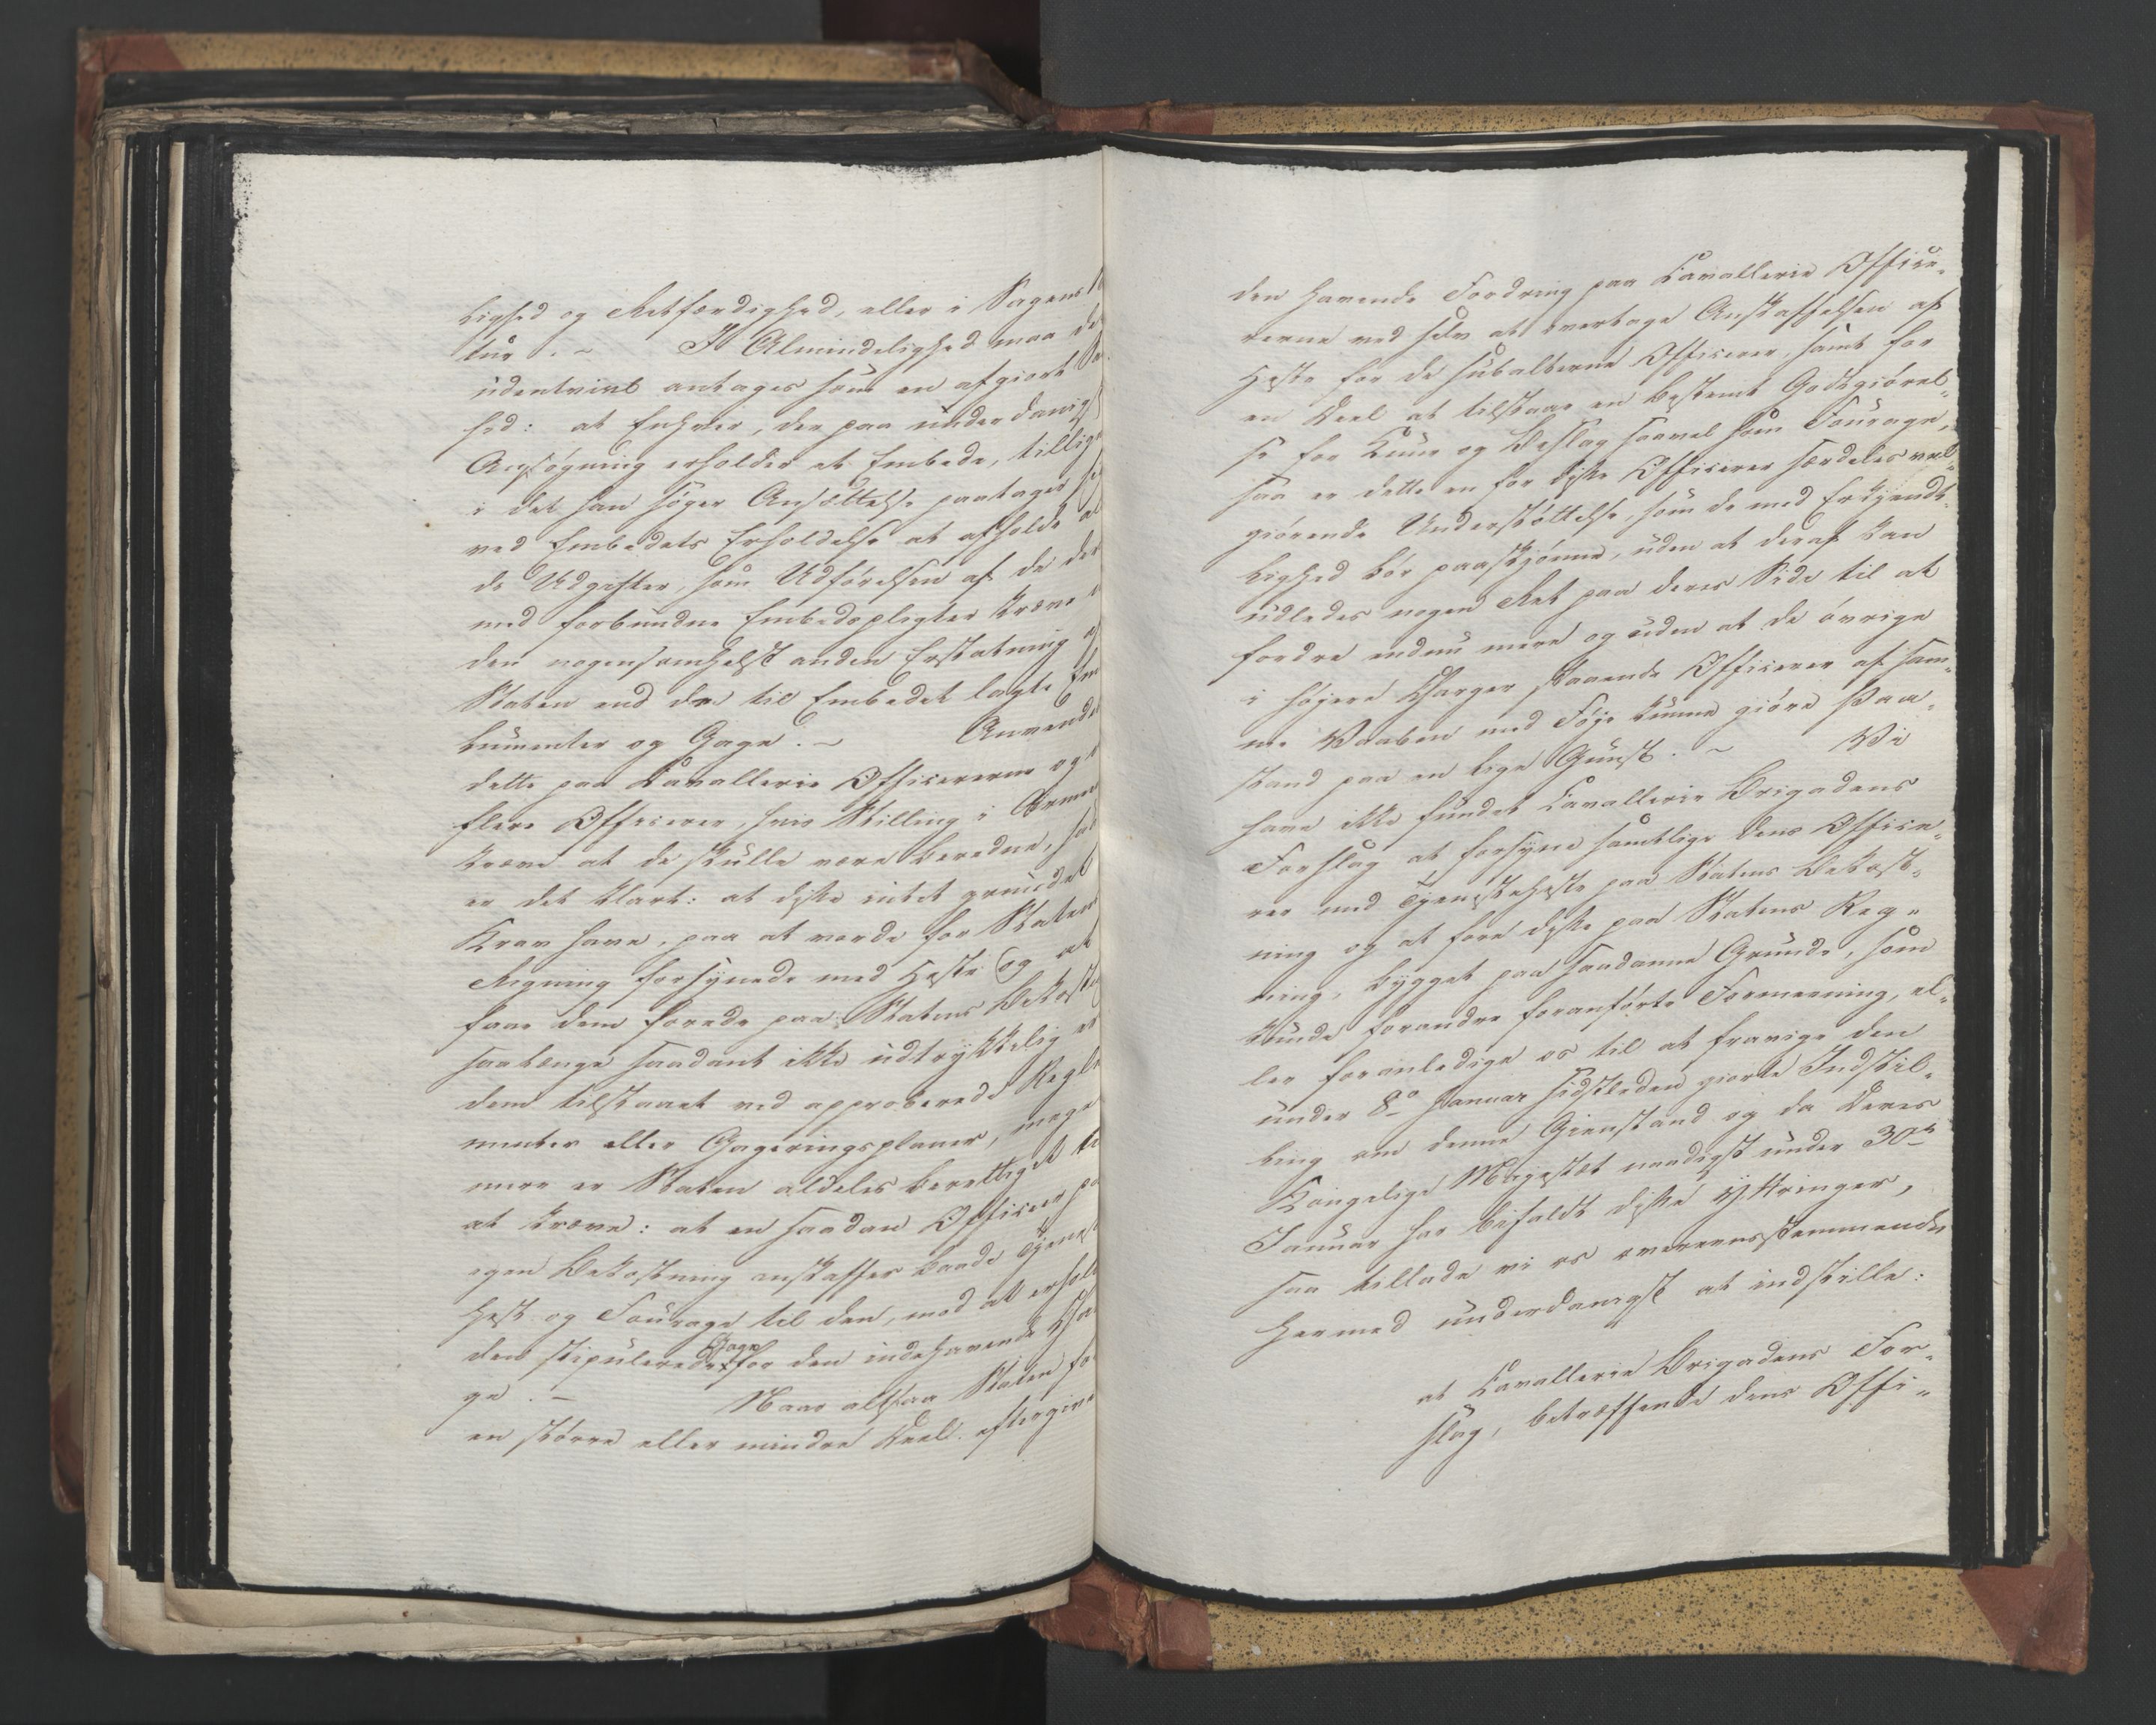 lighed og Retfærdighed, eller i Sagens
tur. – I Almindelighed maa de
udentvivl antages som en afgiort
hed: at Enhver, der paa underdanig
Ansøgning erholder et Embede, tillige
i det han søger Ansættelse paatager
ved Embedets Erholdelse at afholde al
de Udgifter, som Udførelsen af de der
med forbundne Embedspligter kræve
den nogensomhelst anden Erstatning af
Staten end de til Embedet lagte Em
lumenter og Gage. – Anvendes
dette paa Cavallerie Officererne og
flere Officerer, hvis Stilling i Armee
kræve at de skulle være beredne, saa
er det klart: at disse intet grundet
Krav have, paa at vorde for Statens
Regning forsynede med Heste og at
faae dem forede paa Statens Bekost
saalænge saadant ikke udtrykkelig er
dem tilstaaet ved approberede Regle
menter eller Gageringsplaner, meget
mere er Staten aldeles berettiget til
at kræve: at en saadan Officeer paa
egen Bekostning anskaffer baade Tjeneste
Hest og Fourage til den, mod at erholde
den stipulerede Gage for den indehavende Char
ge. – Naar altsaa Staten for
en større eller mindre Deel eftergiver
den havende Fordring paa Cavallerie Office-
rerne ved selv at overtage Anskaffelsen af
Heste for de subalterne Officerer, samt for
en Deel at tilstaae en bestemt Godtgiørel-
se for Cuur og Beslag saavel som Fourage,
saa er dette en for disse Officerer særdeles vel-
giørende Understøttelse, som de med Erkjendt-
lighed bør paaskjønne, uden at deraf kan
udledes nogen Ret paa deres Side til at
fordre endnu mere og uden at de øvrige
i høyere Charger staaende Officerer af sam-
me Vaaben med Føye kunne giøre Paa-
stand paa en lige Gunst. – Vi
have ikke fundet Cavallerie Brigadens
Forslag at forsyne samtlige dens Office-
rer med Tjenesteheste paa Statens Bekost-
ning og at fore disse paa Statens Reg-
ning, bygget paa saadanne Grunde, som
kunde forandre foranførte Formeening, el-
ler foranledige os til at fravige den
under 8de Januar sidstleden giorte Indstil-
ling om denne Gienstand og da Deres
Kongelige Majestæt naadigst under 30te
Januar har bifaldt disse Yttringer,
saa tillade vi os overeensstemmende
hermed underdanigst at indstille:
at Cavallerie Brigadens For-
slag, betræffende dens Offi-